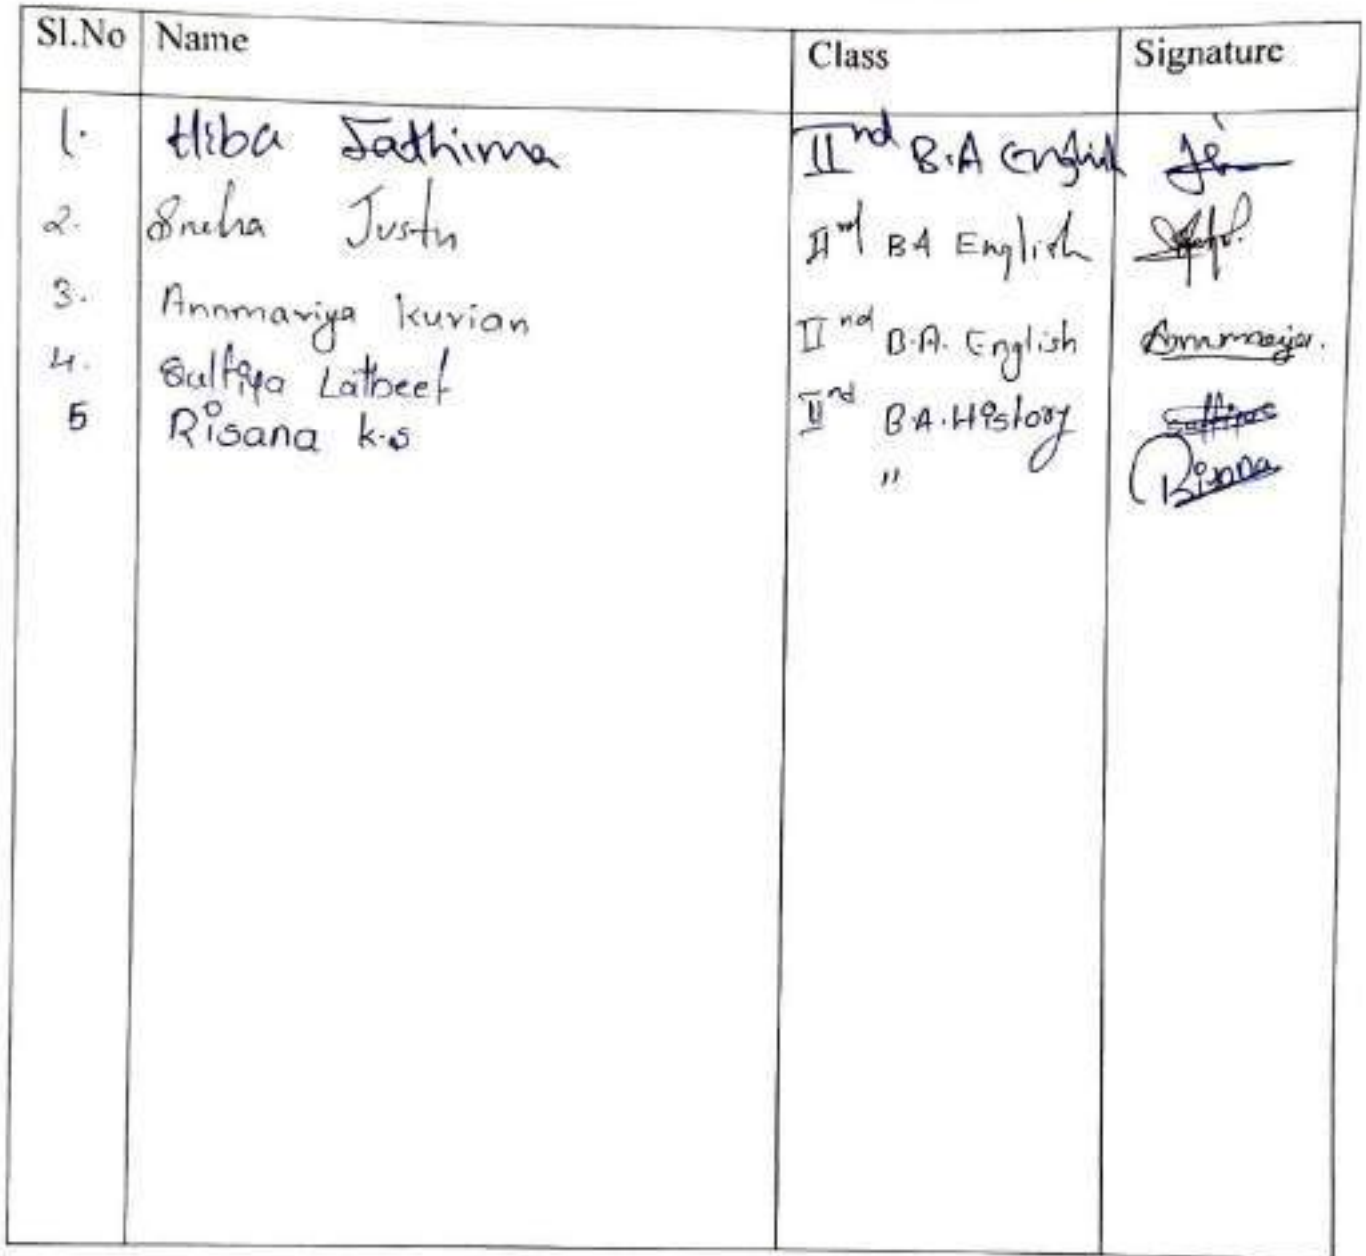 Sl.No Name Class Signature
1. Hiba Fathima IInd B.A English
2. Sneha Justin IInd BA English
3. Annmariya Kurian IInd B.A. English Annmariya.
4. Sulfiya Latheef IInd B.A. History Sulfiya
5 Risana K.S "